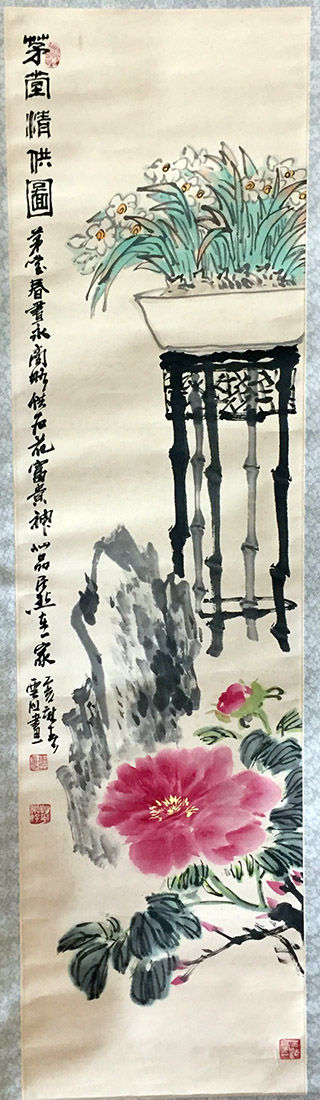 茅堂清供圖
茅堂春晝永閑供石花富貴神仙品居然在一家
雲畫